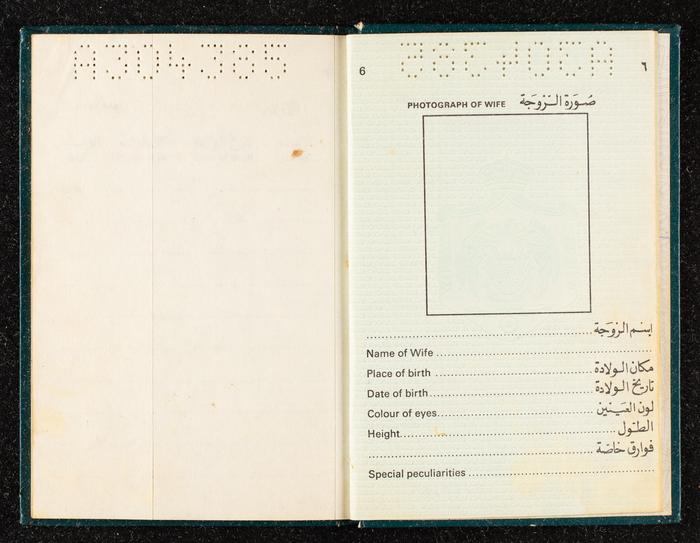 A304385
A304385
6 ٦
PHOTOGRAPH OF WIFE صُورَة الزَّوجَة
إسم الزوجة
Name of Wife
Place of birth مكان الولادة
Date of birth تاريخ الولادة
Colour of eyes لون العينين
Height الطول
فوارق خاصة
Special peculiarities